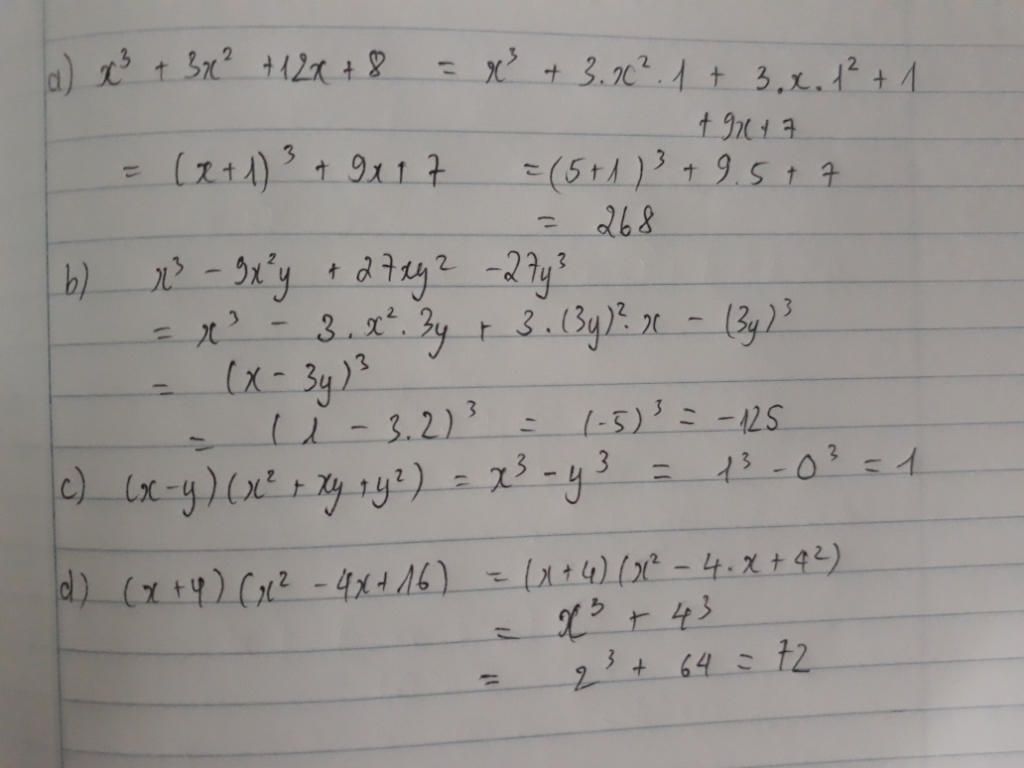 a) x³ + 3x² + 12x + 8 = x³ + 3.x².1 + 3.x.1² + 1
+ 9x + 7
= (x+1)³ + 9x + 7 = (5+1)³ + 9.5 + 7
= 268
b) x³ - 9x²y + 27xy² - 27y³
= x³ - 3.x².3y + 3.(3y)².x - (3y)³
= (x - 3y)³
= (1 - 3.2)³ = (-5)³ = -125
c) (x-y)(x² + xy + y²) = x³ - y³ = 1³ - 0³ = 1
d) (x+4)(x² - 4x + 16) = (x+4)(x² - 4.x + 4²)
= x³ + 4³
= 2³ + 64 = 72